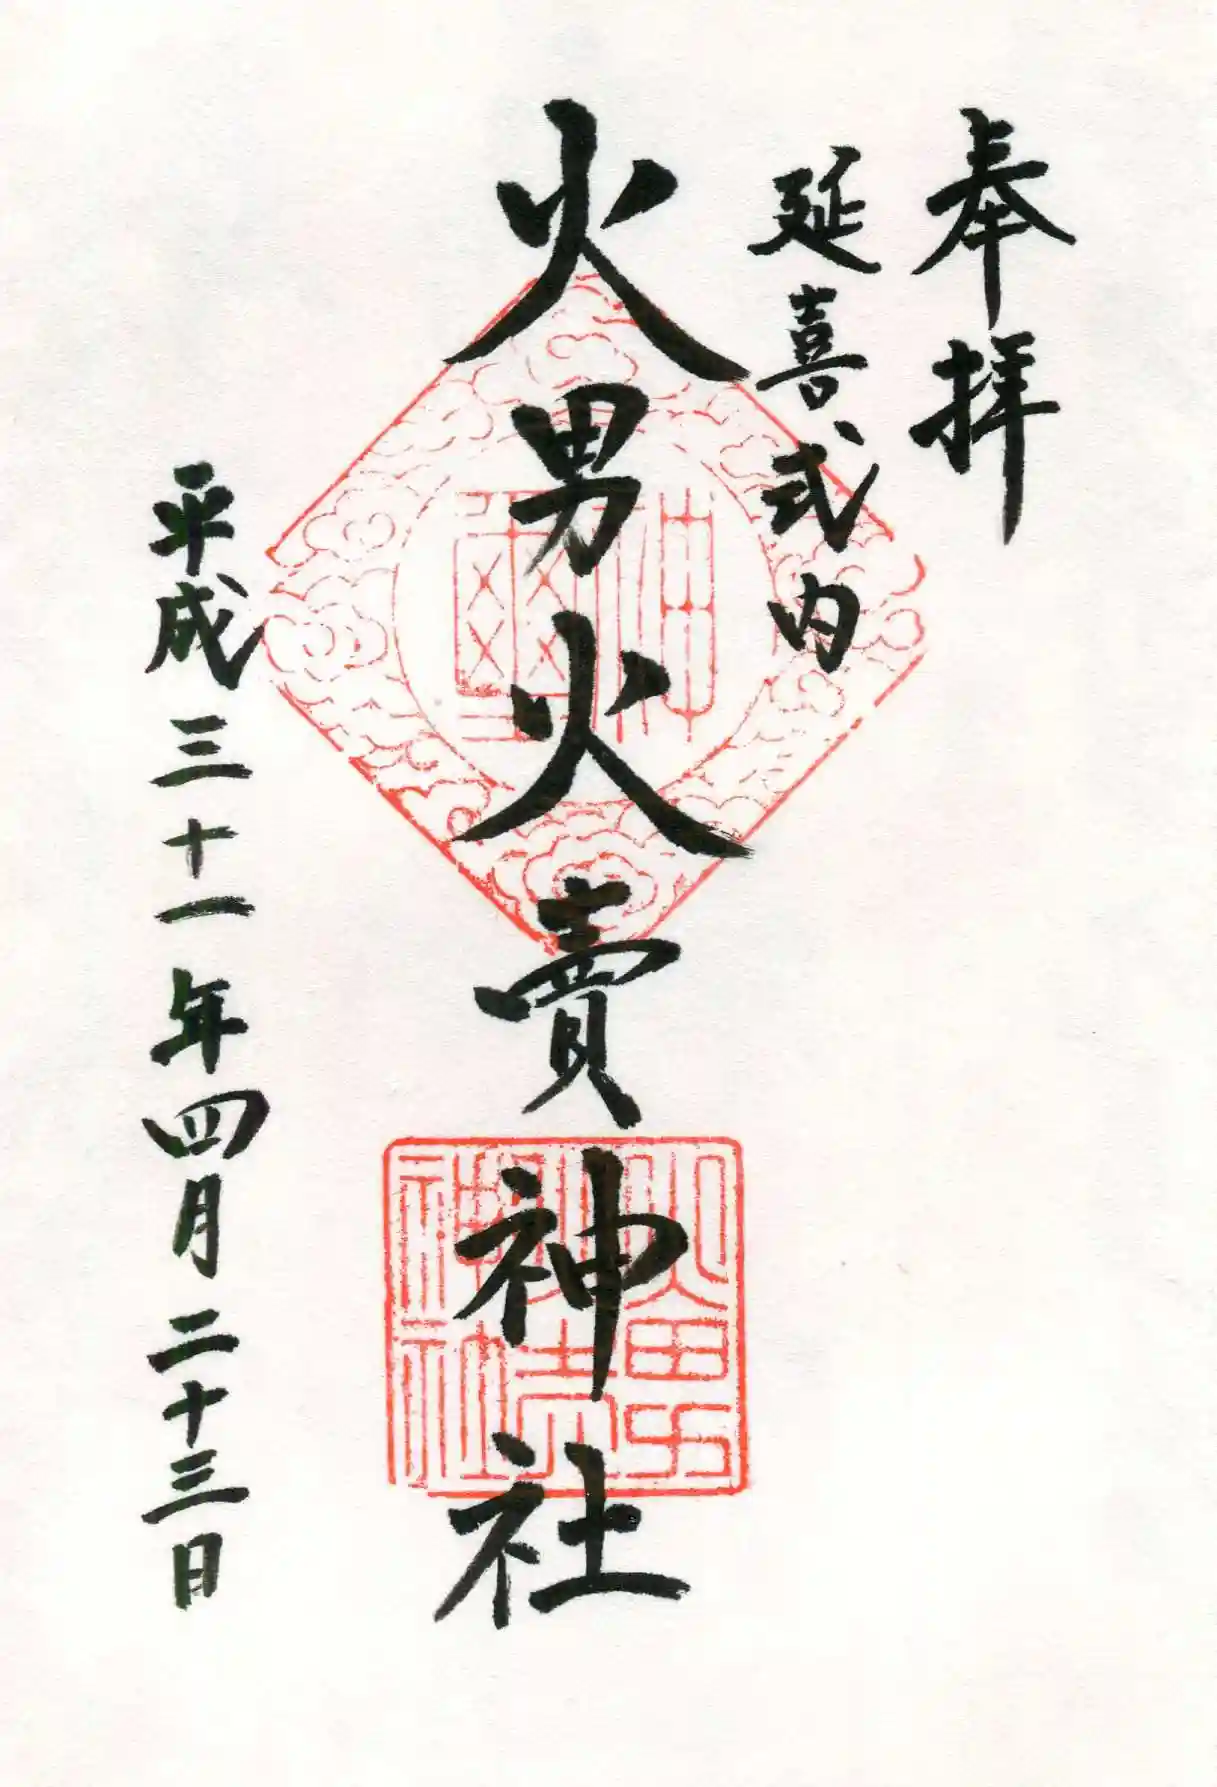 奉拝
延喜式内
火男火賣神社
平成三十一年四月二十三日
神璽
火男火賣神社